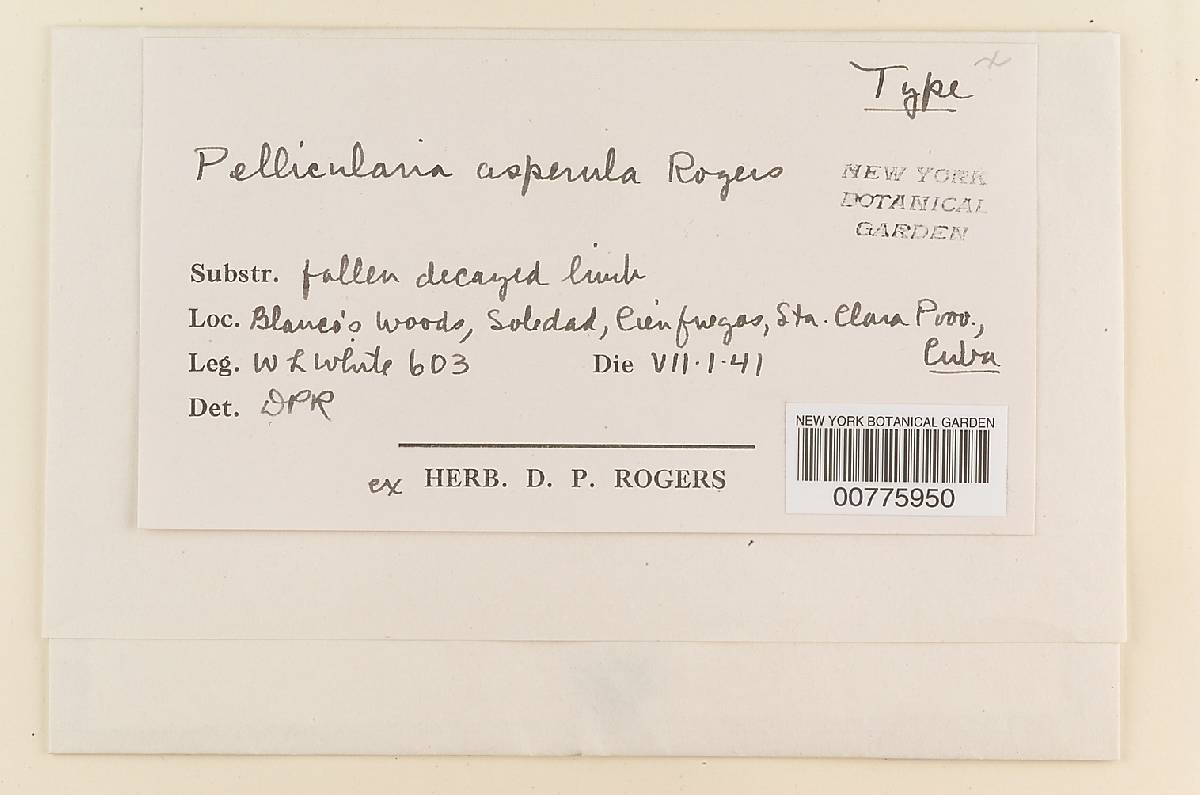 Type x
Pellicularia asperula Rogers
NEW YORK
BOTANICAL
GARDEN
Substr. fallen decayed limb
Loc. Blanco's Woods, Soledad, Cienfuegos, Sta. Clara Prov.,
Cuba
Leg. W L White 603 Die VII·1·41
Det. DPR
NEW YORK BOTANICAL GARDEN
00775950
ex HERB. D. P. ROGERS